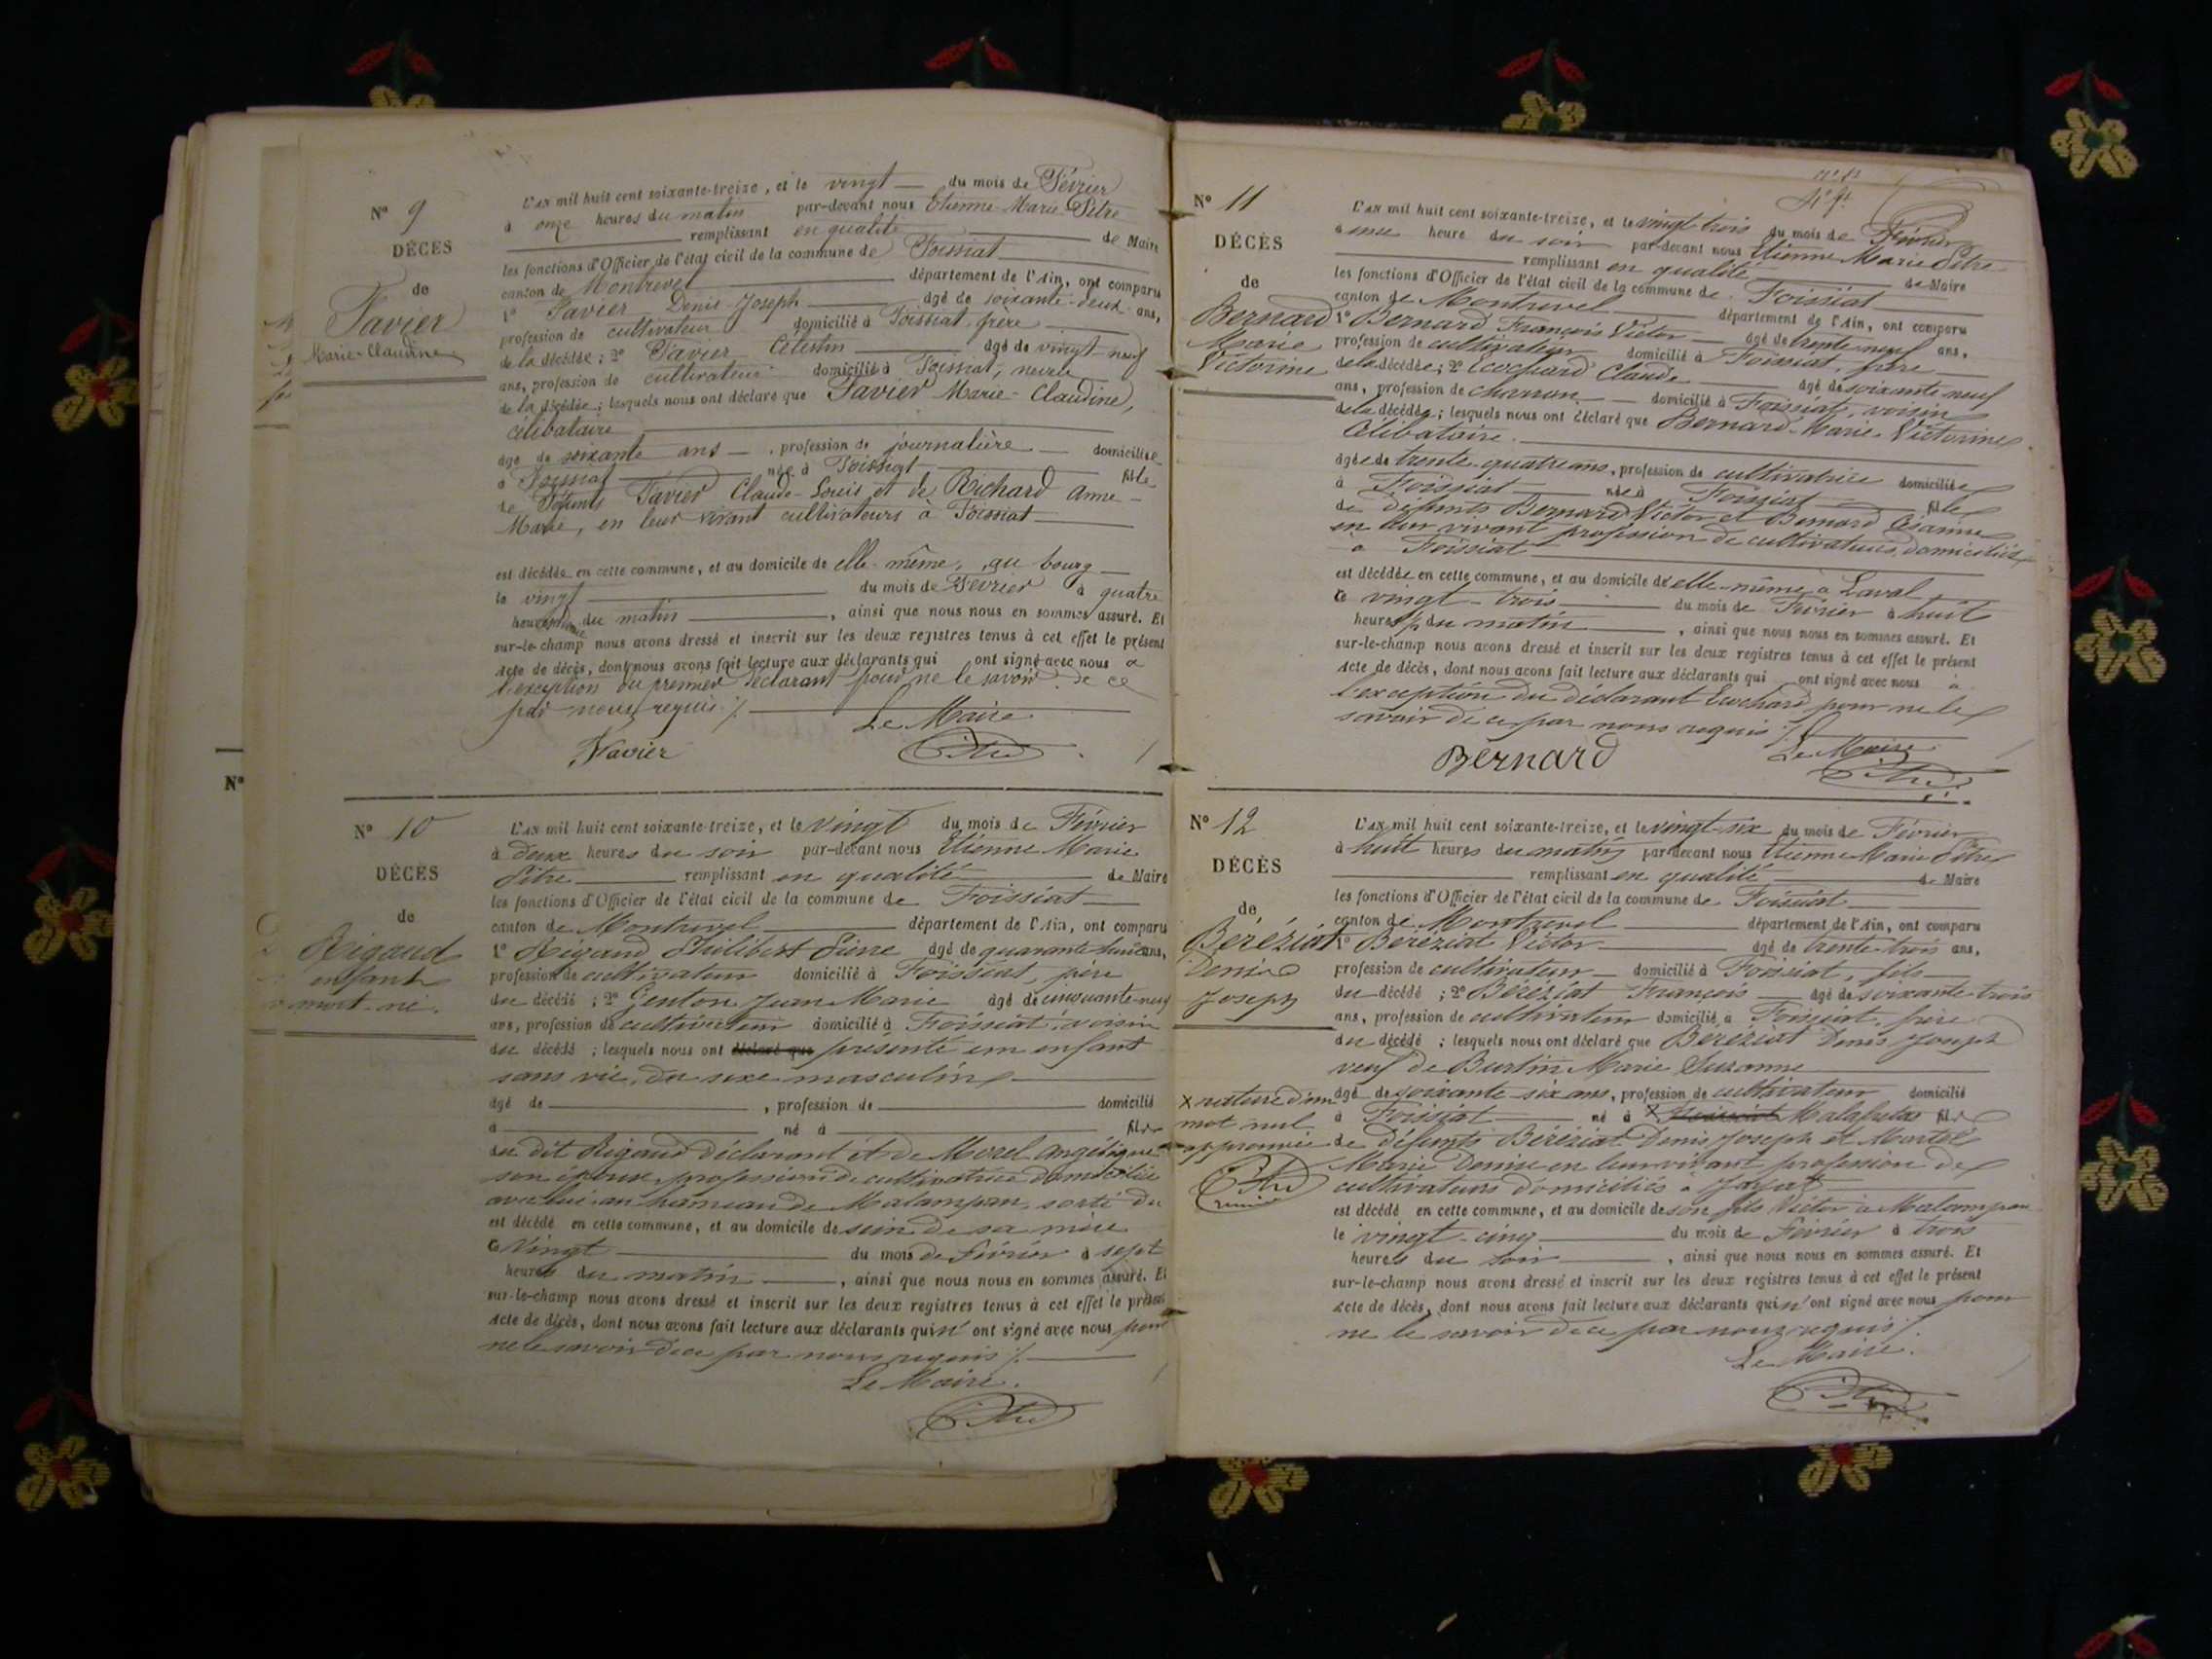 N° 9
DÉCÈS
de
Favier
Marie-Claudine
L'AN mil huit cent soixante-treize, et le vingt du mois de Février
à onze heures du matin par-devant nous Etienne Marie Pitre
remplissant en qualité de Maire
les fonctions d'Officier de l'état civil de la commune de Foissiat
canton de Montrevel département de l'Ain, ont comparu
1° Favier Denis-Joseph âgé de soixante-deux ans,
profession de cultivateur domicilié à Foissiat, frère
de la décédée; 2° Favier Célestin âgé de vingt-neuf
ans, profession de cultivateur domicilié à Foissiat, neveu
de la décédée; lesquels nous ont déclaré que Favier Marie-Claudine,
célibataire
âgé de soixante ans, profession de journalière domiciliée
à Foissiat née à Foissiat fille
de défunts Favier Claude-Louis et de Richard Anne-
Marie, en leur vivant cultivateurs à Foissiat
est décédée en cette commune, et au domicile de elle-même, au bourg
le vingt du mois de Février à quatre
heures du matin, ainsi que nous nous en sommes assuré. Et
sur-le-champ nous avons dressé et inscrit sur les deux registres tenus à cet effet le présent
Acte de décès, dont nous avons fait lecture aux déclarants qui ont signé avec nous à
l'exception du premier déclarant pour ne le savoir de ce
par nous requis ./.
Le Maire
Favier
Pitre
N° 10
DÉCÈS
de
Rigaud
enfant
mort-né.
L'AN mil huit cent soixante-treize, et le vingt du mois de Février
à deux heures du soir par-devant nous Etienne Marie
Pitre remplissant en qualité de Maire
les fonctions d'Officier de l'état civil de la commune de Foissiat
canton de Montrevel département de l'Ain, ont comparu
1° Rigaud Philibert Pierre âgé de quarante-huit ans,
profession de cultivateur domicilié à Foissiat, père
du décédé; 2° Genton Jean Marie âgé de cinquante-neuf
ans, profession de cultivateur domicilié à Foissiat, voisin
du décédé; lesquels nous ont déclaré que présenté un enfant
sans vie, du sexe masculin
âgé de , profession de domicilié
à né à fils
du dit Rigaud déclarant et de Morel Angélique
son épouse, profession de cultivatrice domiciliée
avec lui au hameau de Malampan, sorti du
est décédé en cette commune, et au domicile de sein de sa mère
le vingt du mois de Février à sept
heures du matin, ainsi que nous nous en sommes assuré. Et
sur-le-champ nous avons dressé et inscrit sur les deux registres tenus à cet effet le présent
Acte de décès, dont nous avons fait lecture aux déclarants qui n'ont signé avec nous pour
ne le savoir de ce par nous requis ./.
Le Maire.
Pitre
N° 11
DÉCÈS
de
Bernard
Marie
Victorine
L'AN mil huit cent soixante-treize, et le vingt trois du mois de Février
à une heure du soir par-devant nous Etienne Marie Pitre
remplissant en qualité de Maire
les fonctions d'Officier de l'état civil de la commune de Foissiat
canton de Montrevel département de l'Ain, ont comparu
1° Bernard François Victor âgé de trente-neuf ans,
profession de cultivateur domicilié à Foissiat, frère
de la décédée; 2° Ecochard Claude âgé de soixante neuf
ans, profession de charron domicilié à Foissiat, voisin
de la décédée; lesquels nous ont déclaré que Bernard Marie Victorine
Célibataire.
âgée de trente-quatre ans, profession de cultivatrice domiciliée
à Foissiat née à Foissiat fille
de défunts Bernard Victor et Bernard Césarine
en leur vivant profession de cultivateurs, domiciliés
à Foissiat
est décédée en cette commune, et au domicile de elle-même à Laval
le vingt-trois du mois de Février à huit
heures du matin, ainsi que nous nous en sommes assuré. Et
sur-le-champ nous avons dressé et inscrit sur les deux registres tenus à cet effet le présent
Acte de décès, dont nous avons fait lecture aux déclarants qui ont signé avec nous à
l'exception du déclarant Ecochard pour ne le
savoir de ce par nous requis ./.
Le Maire
Bernard
Pitre
N° 12
DÉCÈS
de
Béréziat
Denis
Joseph
L'AN mil huit cent soixante-treize, et le vingt-six du mois de Février
à huit heures du matin par-devant nous Etienne Marie Pitre
remplissant en qualité de Maire
les fonctions d'Officier de l'état civil de la commune de Foissiat
canton de Montrevel département de l'Ain, ont comparu
1° Béréziat Victor âgé de trente-trois ans,
profession de cultivateur domicilié à Foissiat, fils
du décédé; 2° Béréziat François âgé de soixante-trois
ans, profession de cultivateur domicilié à Foissiat, frère
du décédé; lesquels nous ont déclaré que Béréziat Denis Joseph
veuf de Burtin Marie Suzanne
âgé de soixante-six ans, profession de cultivateur domicilié
à Foissiat né à X Foissiat Malafretaz fils
de défunts Béréziat Denis Joseph et Martel
Marie Denise en leur vivant profession de
cultivateurs domiciliés à Jayat
est décédé en cette commune, et au domicile de son fils Victor à Malampan
le vingt-cinq du mois de Février à trois
heures du soir, ainsi que nous nous en sommes assuré. Et
sur-le-champ nous avons dressé et inscrit sur les deux registres tenus à cet effet le présent
Acte de décès, dont nous avons fait lecture aux déclarants qui n'ont signé avec nous pour
ne le savoir de ce par nous requis ./.
Le Maire.
Pitre
X rature d'un
mot nul
approuvée
Pitre